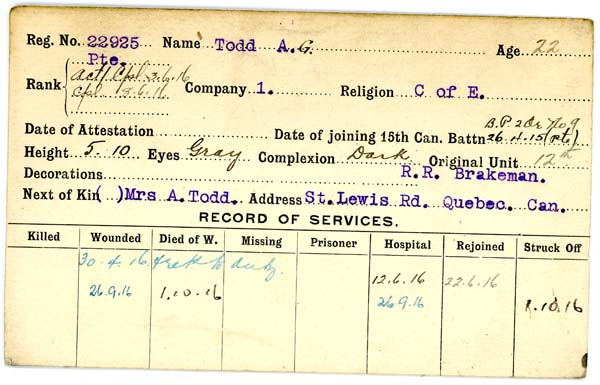 Reg. No. 22925 Name Todd A.G. Age 22
Pte.
Act/Cpl 3.6.16
Rank Cpl 3.6.16 Company 1. Religion C of E.
B.P 2 Or 709
Date of Attestation Date of joining 15th Can. Battn 26.4.15 (Pte)
Height 5 10 Eyes Gray Complexion Dark Original Unit 12th
Decorations R.R. Brakeman.
Next of Kin ( ) Mrs A. Todd. Address St. Lewis Rd. Quebec. Can.
RECORD OF SERVICES.
Killed Wounded Died of W. Missing Prisoner Hospital Rejoined Struck Off
30.4.16. to duty.
12.6.16 22.6.16
26.9.16 1.10.16 26.9.16 1.10.16